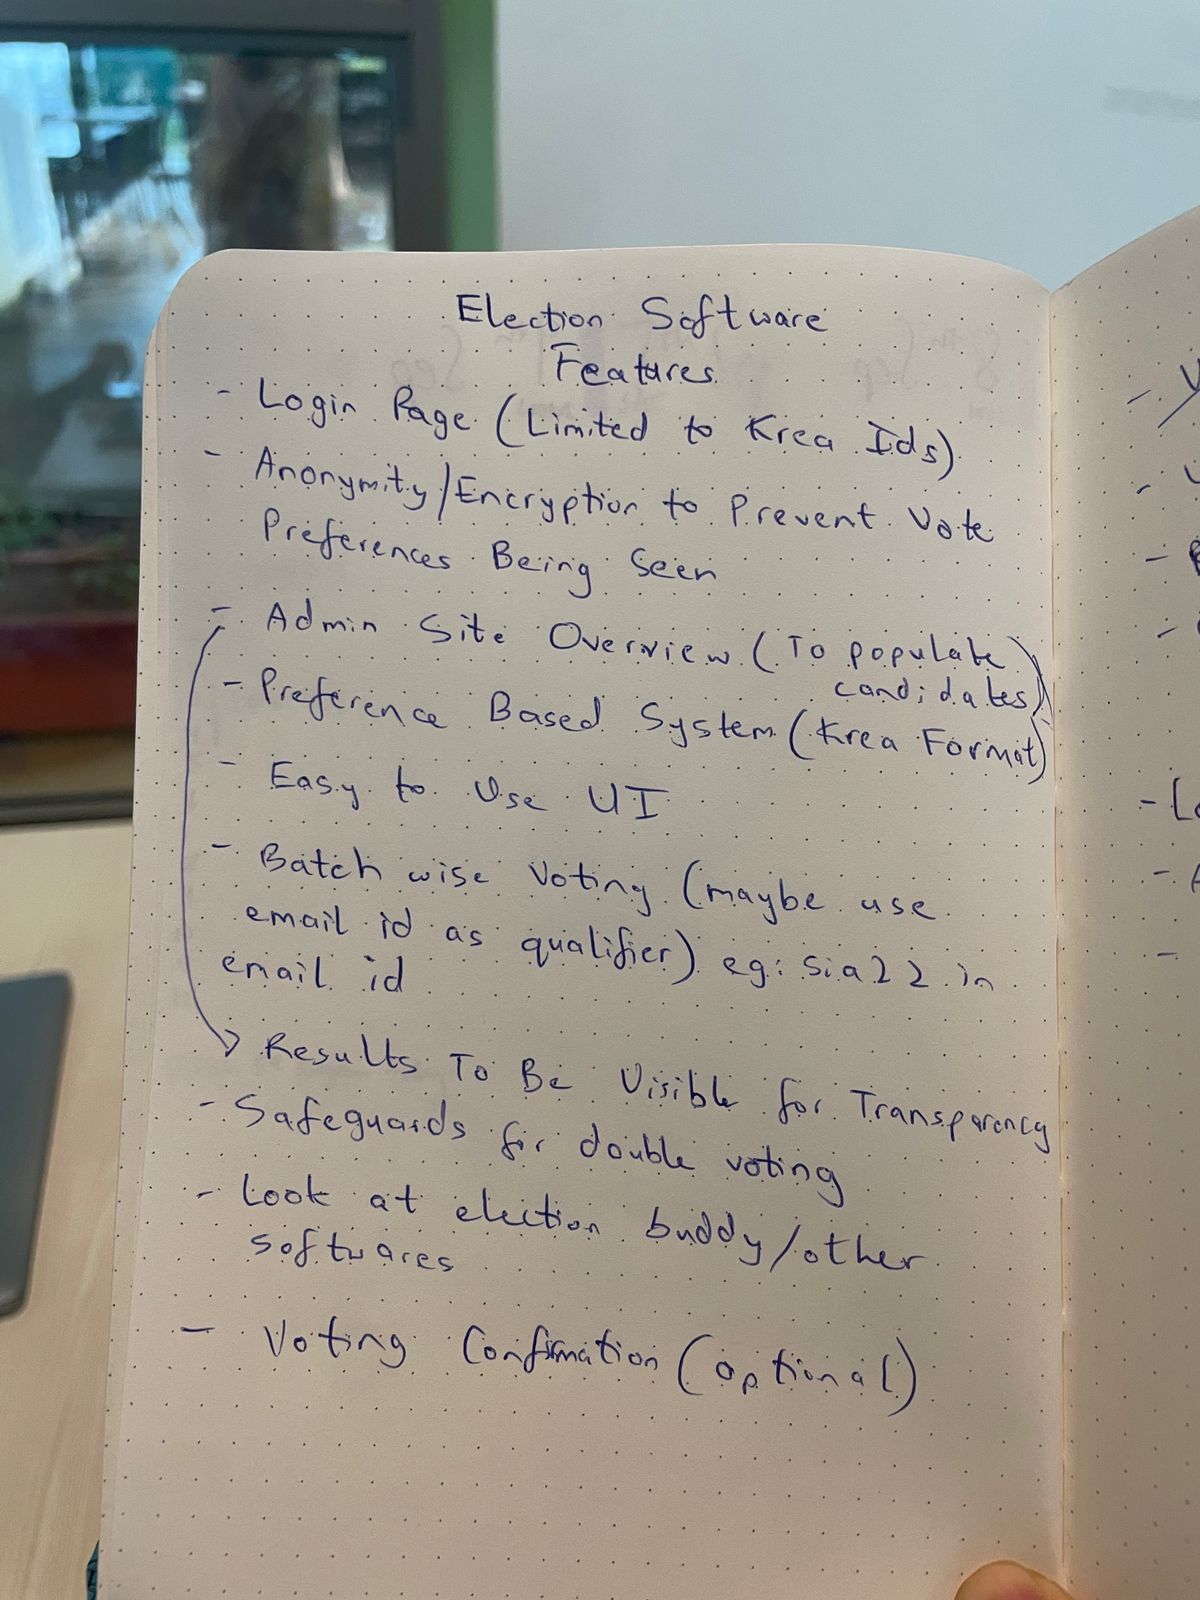 Election Software
Features
- Login Page (Limited to Krea Ids)
- Anonymity/Encryption to Prevent Vote
Preferences Being Seen
- Admin Site Overview (To populate
candidates)
- Preference Based System (Krea Format)
- Easy to Use UI
- Batch wise Voting (maybe use
email id as qualifier) eg: sia22 in
email id
→ Results To Be Visible for Transparency
- Safeguards for double voting
- Look at election buddy/other
softwares
- Voting Confirmation (optional)